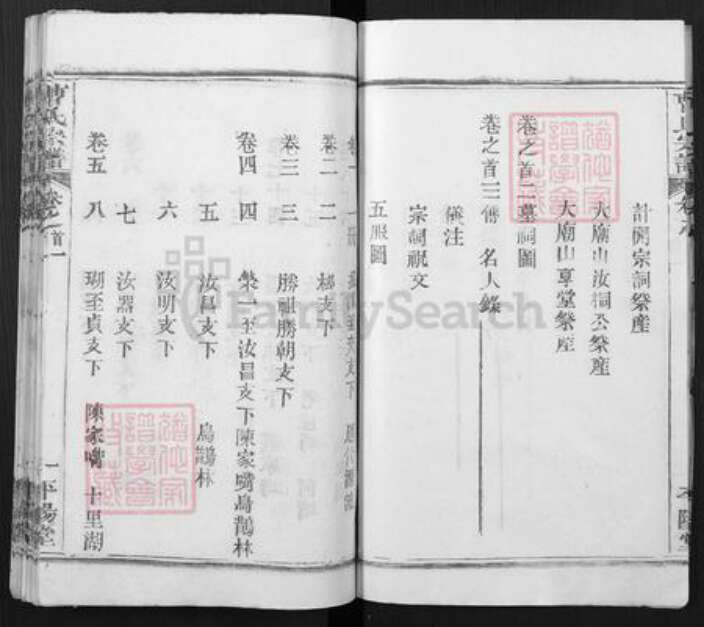 計開宗祠祭產
大廟山汝桐公祭產
大廟山享堂祭產
卷之首二墓祠圖
卷之首三傳 名人錄
儀注
宗祠祝文
五服圖
卷二 二 梛支下
卷三 三 勝祖勝朝支下
卷四 四 榮一至汝昌支下陳家嘴烏鵲林
五 汝昌支下 烏鵲林
六 汝明支下
七 汝器支下
卷五 八 瑚至貞支下 陳家嘴 十里湖
曹氏宗譜 卷之首 一 平陽堂
FamilySearch